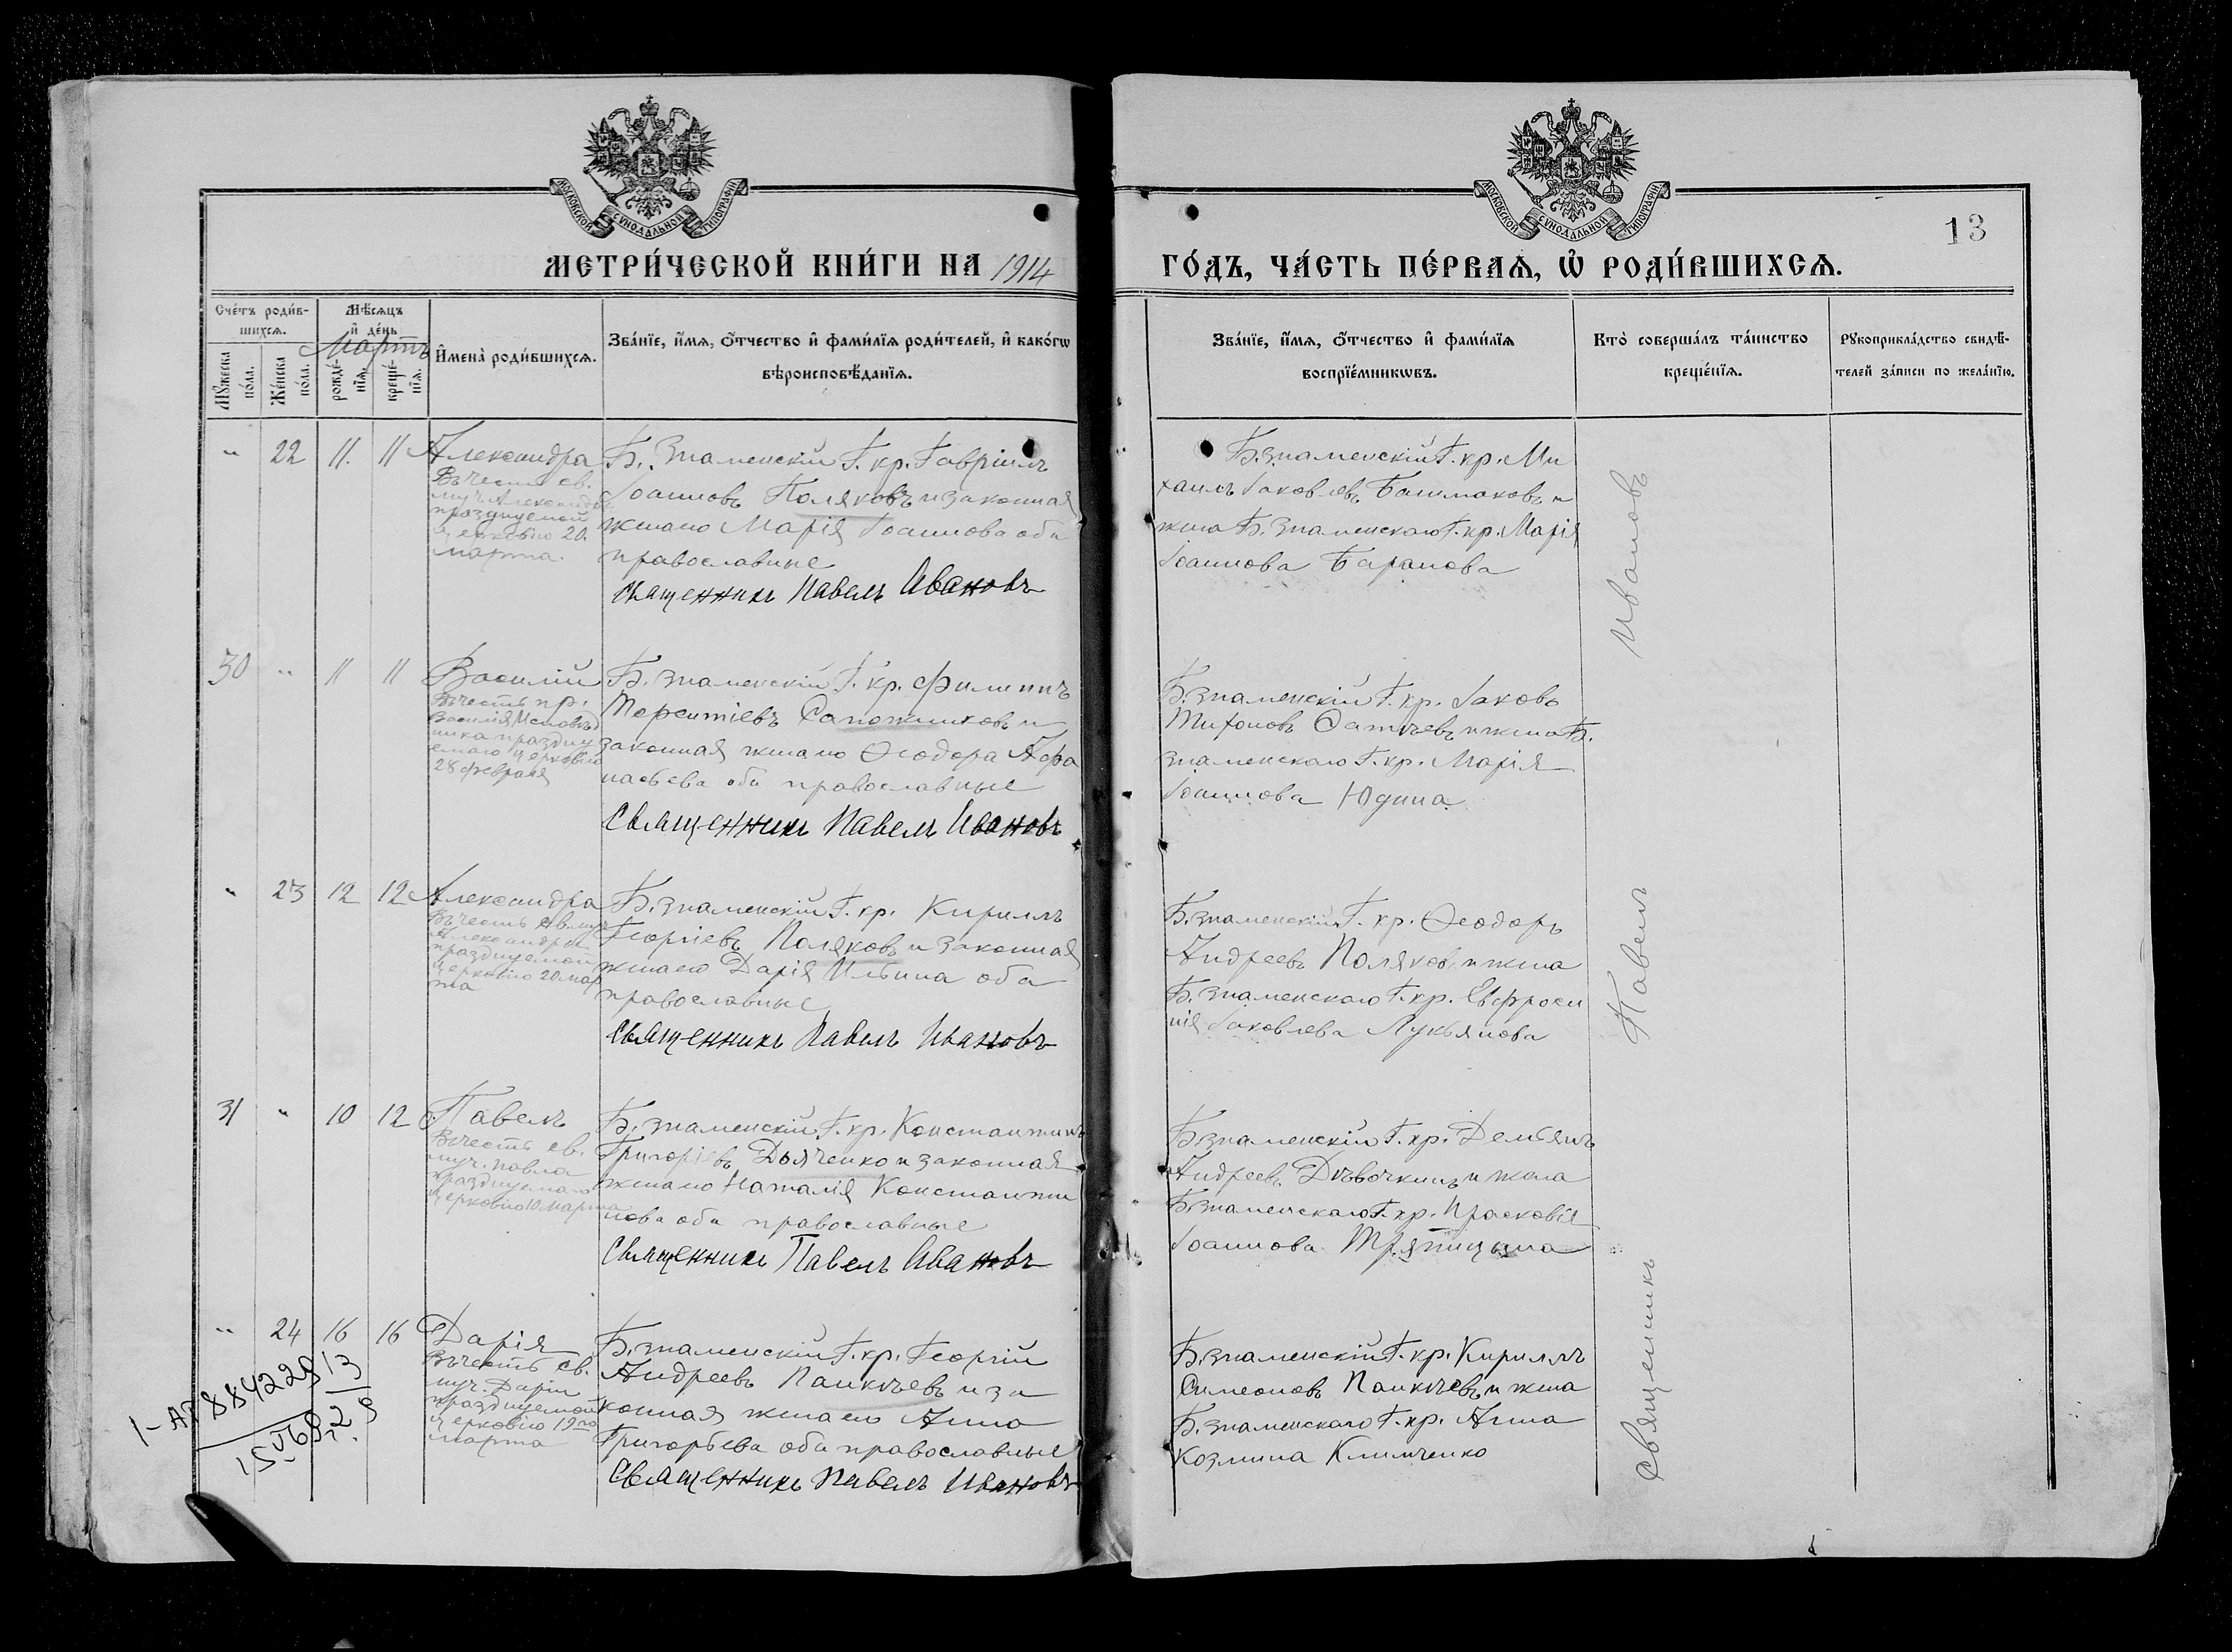 МОСКОВСКОЙ СУНОДАЛЬНОЙ ТИПОГРАФІИ
МОСКОВСКОЙ СУНОДАЛЬНОЙ ТИПОГРАФІИ
13
МЕТРИ́ЧЕСКОЙ КНИ́ГИ НА 1914 ГО́ДЪ, ЧА́СТЬ ПЕ́РВАѦ, Ѡ҆ РОДИ́ВШИХСѦ.
Сче́тъ роди́в-
шихсѧ.
Мꙋ́жеска по́ла.
Же́нска по́ла.
Мѣ́сѧцъ
и҆ де́нь
Мартъ
рожде́нїѧ.
креще́нїѧ.
И҆мена̀ роди́вшихсѧ.
Зва́нїе, и҆́мѧ, ѻ҆́тчество и҆ фами́лїѧ роди́телей, и҆ како́гѡ
вѣроисповѣ́данїѧ.
Зва́нїе, и҆́мѧ, ѻ҆́тчество и҆ фами́лїѧ
воспрїе́мникѡвъ.
Кто̀ соверша́лъ та́инство
креще́нїѧ.
Рꙋкоприкла́дство свидѣ́-
телей за́писи по жела́нїю.
" 22 11. 11 Александра
Въ честь св.
муч. Александры
празднуемой
церковію 20
марта.
Б. Знаменскій Г. кр. Гавріилъ
Іоанновъ Поляковъ и законная
жена его Марія Іоаннова оба
православные
Священникъ Павелъ Ивановъ
Б. знаменскій Г. кр. Ми
хаилъ Іаковлевъ Башмаковъ и
жена Б. знаменскаго Г. кр. Марія
Іоаннова Баранова
30 " 11 11 Василій
Въ честь пр.
Василія Исповѣд
ника праздну
емаго церковію
28 февраля
Б. знаменскій Г. кр. Филиппъ
Терентіевъ Сапожниковъ и
законная жена его Ѳеодора Аѳа
насьева оба православные
Священникъ Павелъ Ивановъ
Б. знаменскій Г. кр. Іаковъ
Тихоновъ и жена Б.
знаменскаго Г. кр. Марія
Іоаннова Юдина
" 23 12 12 Александра
Въ честь св. муч.
Александры
празднуемой
церковію 20 мар
та
Б. знаменскій Г. кр. Кириллъ
Георгіевъ Поляковъ и законная
жена его Дарія Ильина оба
православные
Священникъ Павелъ Ивановъ
Б. знаменскій Г. кр. Ѳеодоръ
Андреевъ Поляковъ и жена
Б. знаменскаго Г. кр. Евфроси
нія Іаковлева Лукьянова
31 " 10 12 Павелъ
Въ честь св.
муч. Павла
празднуемаго
церковію 10 марта
Б. знаменскій Г. кр. Константинъ
Григоріевъ Дьяченко и законная
жена его Наталія Константи
нова оба православные
Священникъ Павелъ Ивановъ
Б. знаменскій Г. кр. Демьянъ
Андреевъ Дѣвочкинъ и жена
Б. знаменскаго Г. кр. Прасковія
Іоаннова Тряпицына
" 24 16 16 Дарія
Въ честь св.
муч. Даріи
празднуемой
церковію 19го
марта
Б. знаменскій Г. кр. Георгій
Андреевъ Панкѣевъ и за
конная жена его Анна
Григорьева оба православные
Священникъ Павелъ Ивановъ
Б. знаменскій Г. кр. Кириллъ
Симеоновъ Панкѣевъ и жена
Б. знаменскаго Г. кр. Анна
Козмина Климченко
Священникъ Павелъ Ивановъ